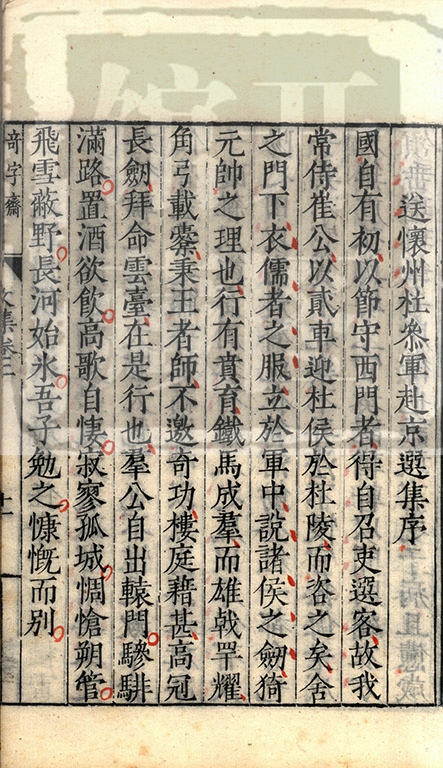 送懷州杜參軍赴京選集序
國自有初以節守西門者得自召吏選客故我
常侍崔公以貳車迎杜侯於杜陵而咨之矣舍
之門下衣儒者之服立於軍中說諸侯之劒猗
元帥之理也行有賁育鐵馬成羣而雄戟罕耀
角弓載櫜秉王者師不邀奇功樓庭藉甚高冠
長劒拜命雲臺在是行也羣公自出轅門驂騑
滿路置酒欲飲高歌自悽寂寥孤城惆愴朔管
飛雪蔽野長河始氷吾子勉之慷慨而別
奇字齋
文集卷二
十一